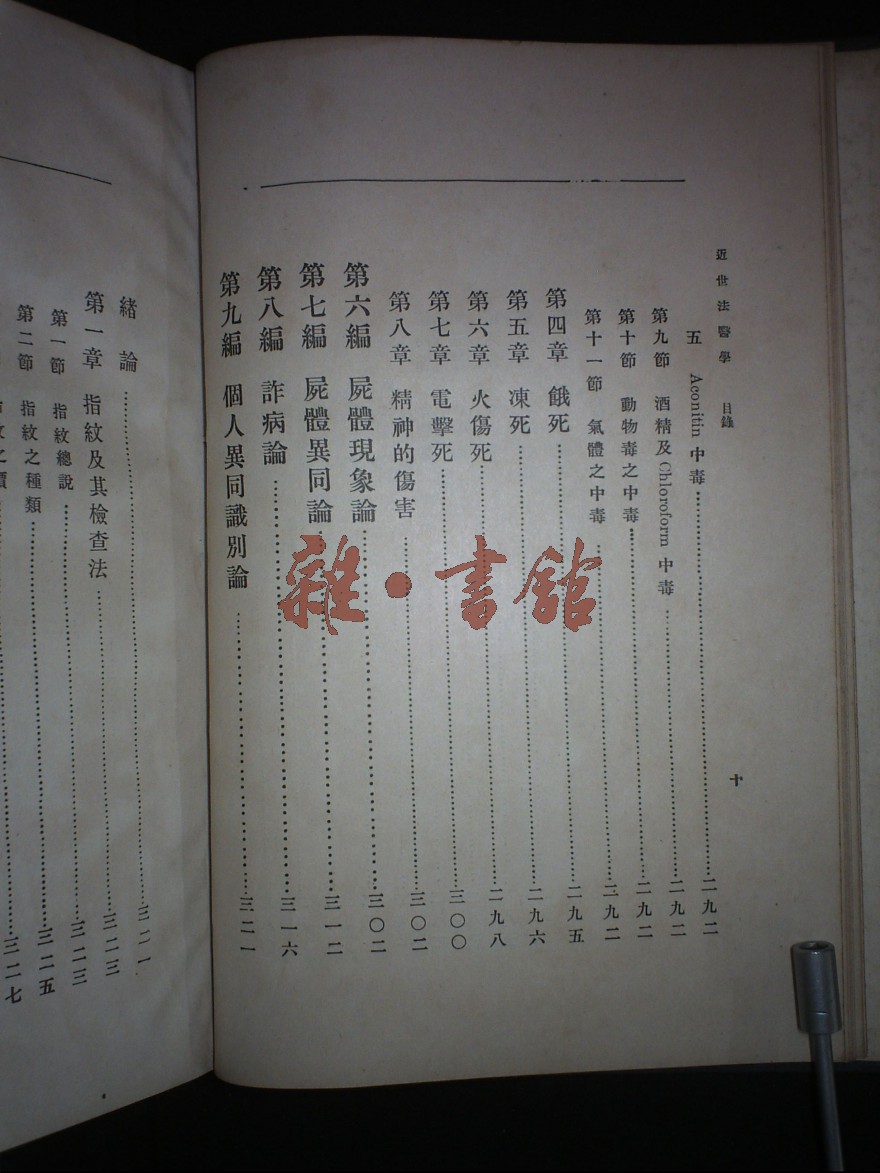 近世法醫學 目錄
十
五 Aconitin 中毒 二九二
第九節 酒精及Chloroform 中毒 二九二
第十節 動物毒之中毒 二九二
第十一節 氣體之中毒 二九二
第四章 餓死 二九五
第五章 凍死 二九六
第六章 火傷死 二九八
第七章 電擊死 三〇〇
第八章 精神的傷害 三〇二
第六編 屍體現象論 三〇二
第七編 屍體異同論 三一二
第八編 詐病論 三一六
第九編 個人異同識別論 三二一
緒論 三二一
第一章 指紋及其檢查法 三二三
第一節 指紋總說 三二三
第二節 指紋之種類 三二五
三二七
雜·書館